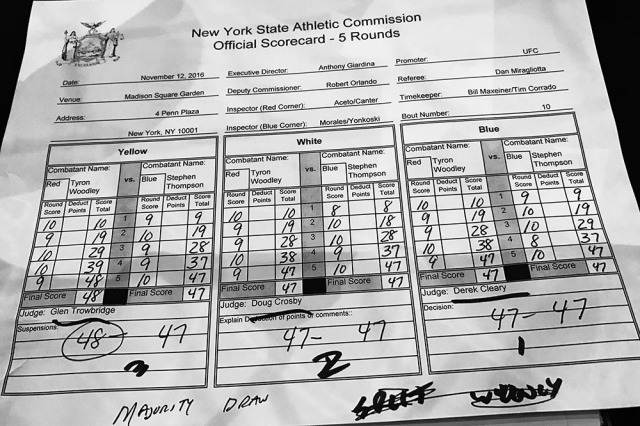 New York State Athletic Commission
Official Scorecard - 5 Rounds
Date: November 12, 2016
Venue: Madison Square Garden
Address: 4 Penn Plaza
New York, NY 10001
Executive Director: Anthony Giardina
Deputy Commissioner: Robert Orlando
Inspector (Red Corner): Aceto/Canter
Inspector (Blue Corner): Morales/Yonkoski
Promoter: UFC
Referee: Dan Miragliotta
Timekeeper: Bill Maxeiner/Tim Corrado
Bout Number: 10
Yellow
Combatant Name: vs. Combatant Name:
Red Tyron Woodley Blue Stephen Thompson
Round Score Deduct Points Score Total Round Score Deduct Points Score Total
10 10 1 9 9
9 19 2 10 19
10 29 3 9 28
10 39 4 9 37
9 48 5 10 47
Final Score 48 Final Score 47
Judge: Glen Trowbridge
Suspensions:
48 - 47
3
White
Combatant Name: vs. Combatant Name:
Red Tyron Woodley Blue Stephen Thompson
Round Score Deduct Points Score Total Round Score Deduct Points Score Total
10 10 1 8 8
9 19 2 10 18
9 28 3 10 28
10 38 4 9 37
9 47 5 10 47
Final Score 47 Final Score 47
Judge: Doug Crosby
Explain Deduction of points or comments::
47 - 47
2
Blue
Combatant Name: vs. Combatant Name:
Red Tyron Woodley Blue Stephen Thompson
Round Score Deduct Points Score Total Round Score Deduct Points Score Total
10 10 1 9 9
9 19 2 10 19
9 28 3 10 29
10 38 4 8 37
9 47 5 10 47
Final Score 47 Final Score 47
Judge: Derek Cleary
Decision:
47 - 47
1
MAJORITY DRAW